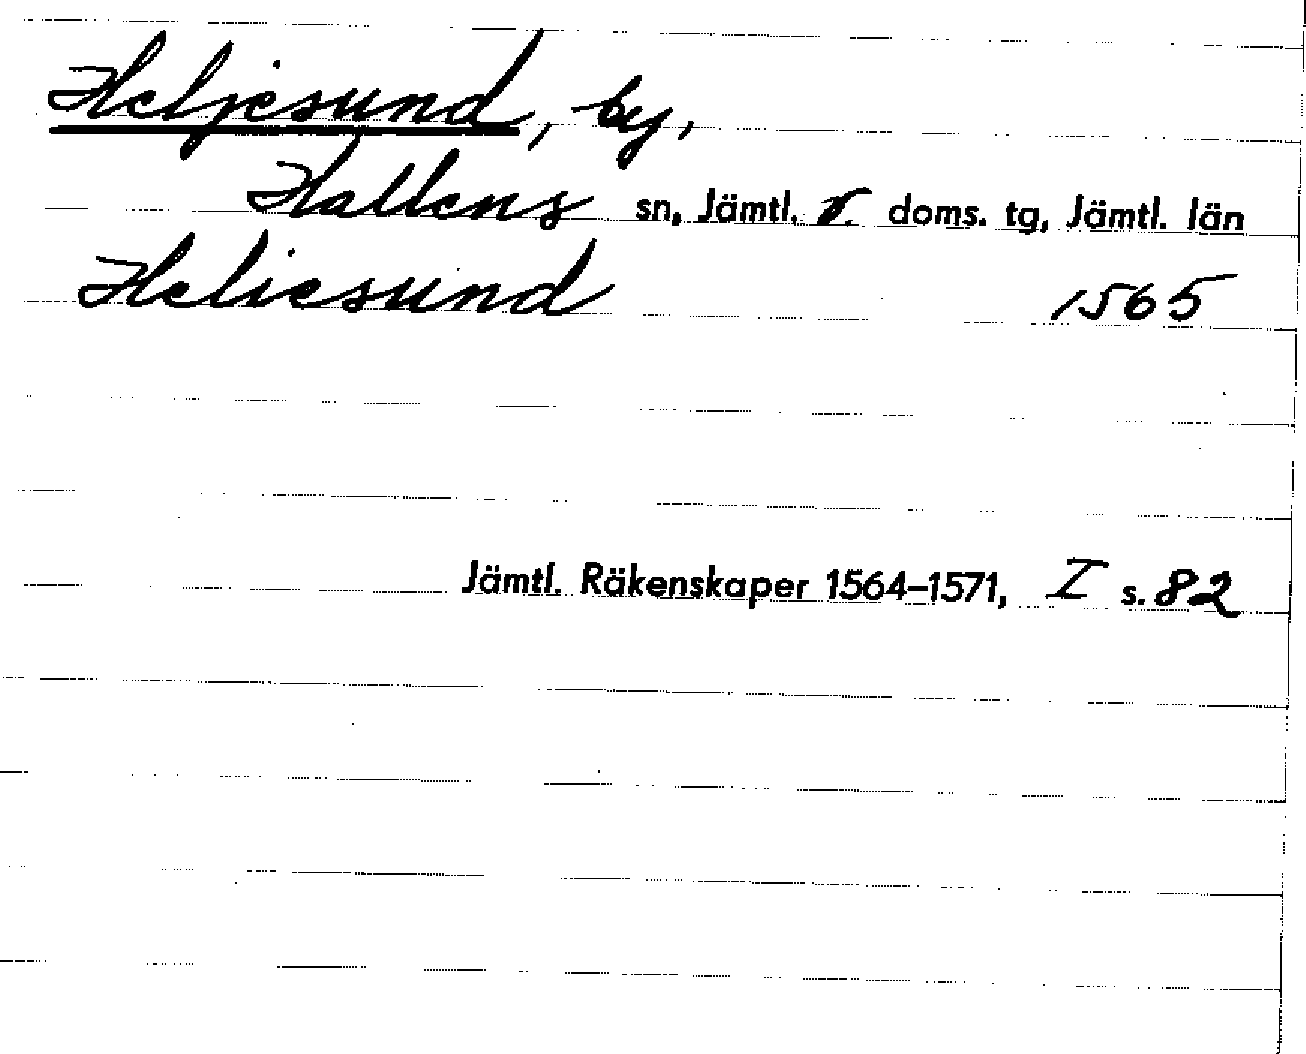 Heljesund, by,
Hallens sn, Jämtl. v. doms. tg, Jämtl. län
Heliesund 1565
Jämtl. Räkenskaper 1564–1571, I s. 82